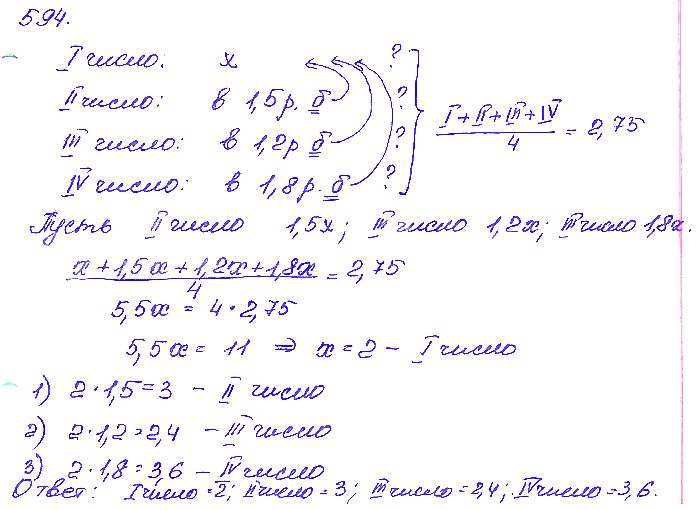 594.
I число: x ?
II число: в 1,5 р. б ?
III число: в 1,2 р б ?
IV число: в 1,8 р. б ?
(I + II + III + IV)/4 = 2,75
Пусть II число 1,5x; III число 1,2x; III число 1,8x.
(x + 1,5x + 1,2x + 1,8x)/4 = 2,75
5,5x = 4 · 2,75
5,5x = 11 ⇒ x = 2 – I число
1) 2 · 1,5 = 3 – II число
2) 2 · 1,2 = 2,4 – III число
3) 2 · 1,8 = 3,6 – IV число
Ответ: I число = 2; II число = 3; III число = 2,4; IV число = 3,6.